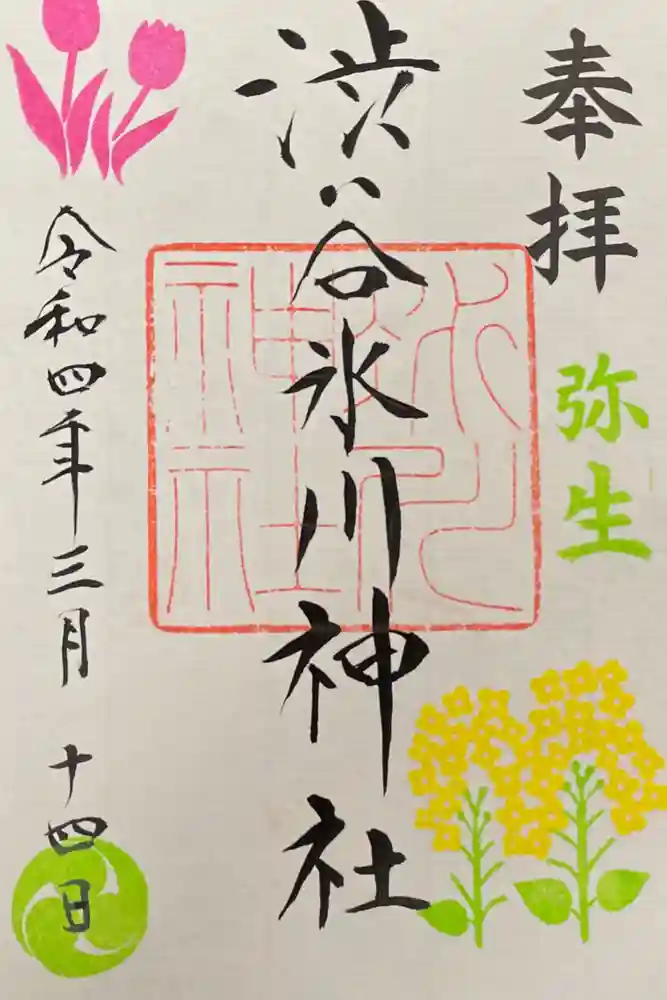 奉拝
弥生
渋谷氷川神社
令和四年三月 十四日